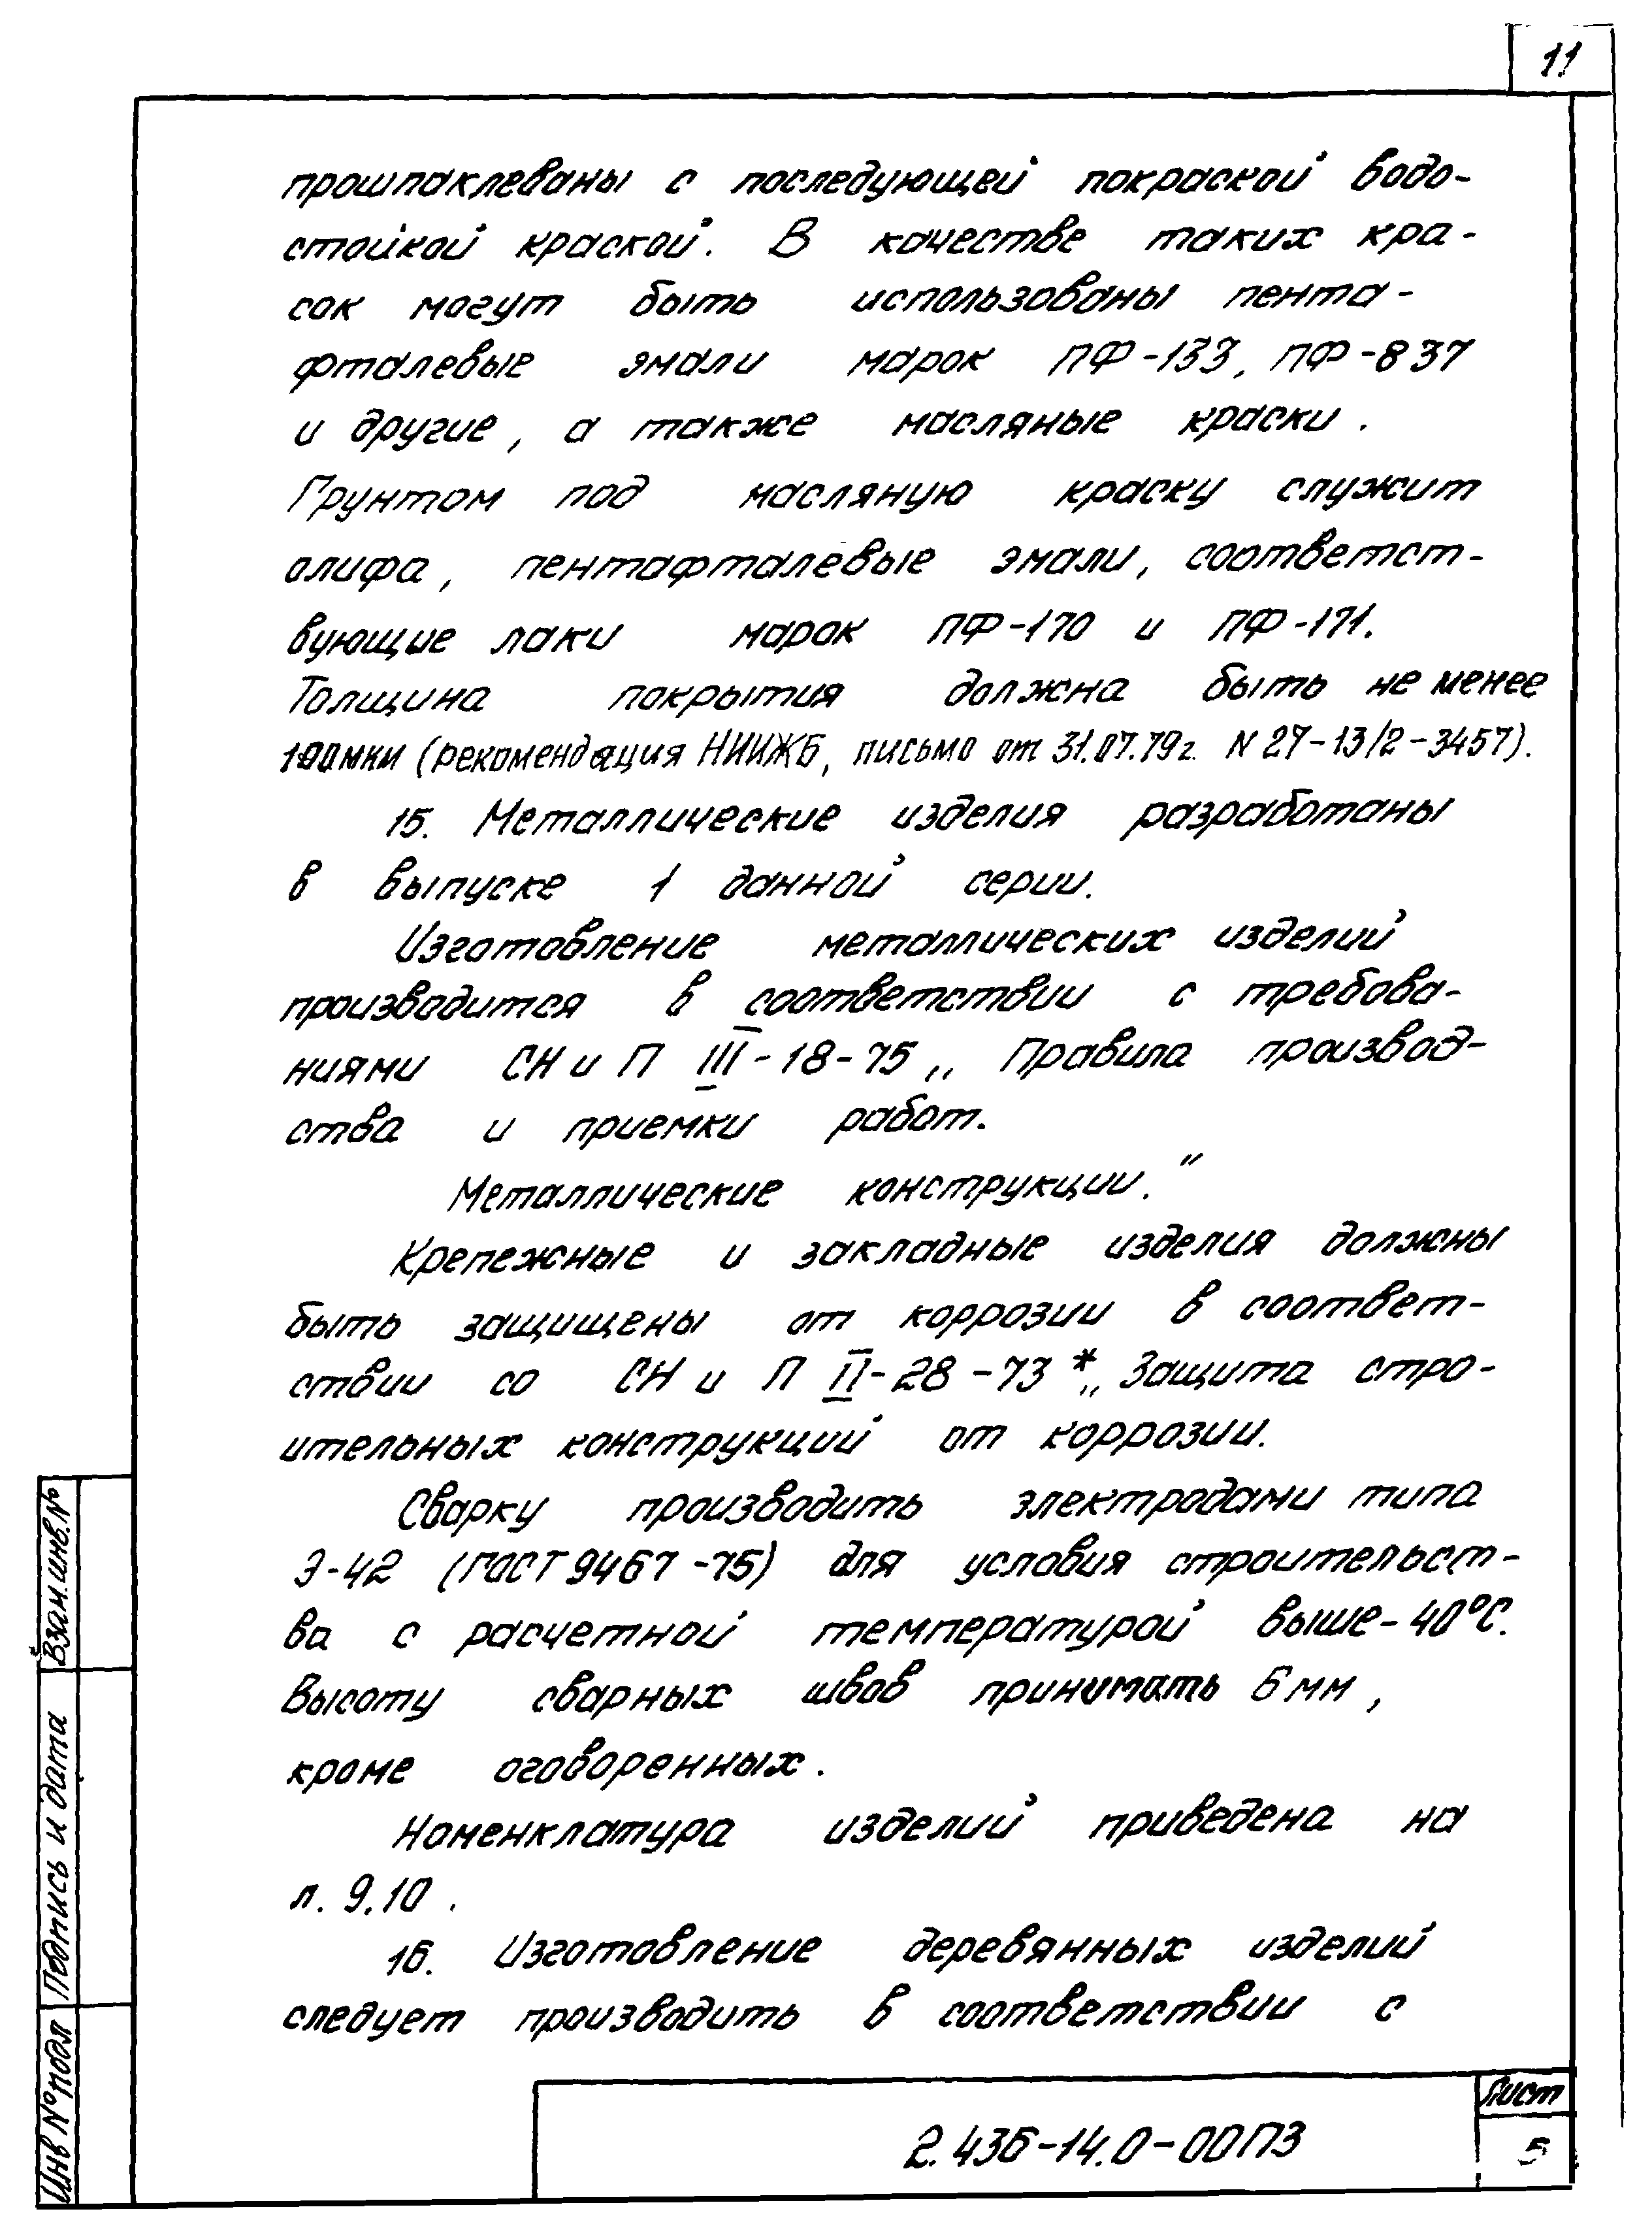 11
прошпаклеваны с последующей покраской водо-
стойкой краской. В качестве таких кра-
сок могут быть использованы пента-
фталевые эмали марок ПФ-133, ПФ-837
и другие, а также масляные краски.
Грунтом под масляную краску служит
олифа, пентафталевые эмали, соответст-
вующие лаки марок ПФ-170 и ПФ-171.
Толщина покрытия должна быть не менее
100мкн (рекомендация НИИЖБ, письмо от 31.07.79г. N 27-13/2-3457).
15. Металлические изделия разработаны
в выпуске 1 данной серии.
Изготовление металлических изделий
производится в соответствии с требова-
ниями СНиП III-18-75 „Правила производ-
ства и приемки работ.
Металлические конструкции."
Крепежные и закладные изделия должны
быть защищены от коррозии в соответ-
ствии со СНиП II-28-73*„Защита стро-
ительных конструкций от коррозии.
Сварку производить электродами типа
Э-42 (ГОСТ 9467-75) для условия строительст-
ва с расчетной температурой выше-40°С.
Высоту сварных швов принимать 6мм,
кроме оговоренных.
Номенклатура изделий приведена на
л. 9,10.
16. Изготовление деревянных изделий
следует производить в соответствии с
Взам.инв.№
Подпись и дата
Инв №подл
2.436-14.0-00ПЗ
Лист
5